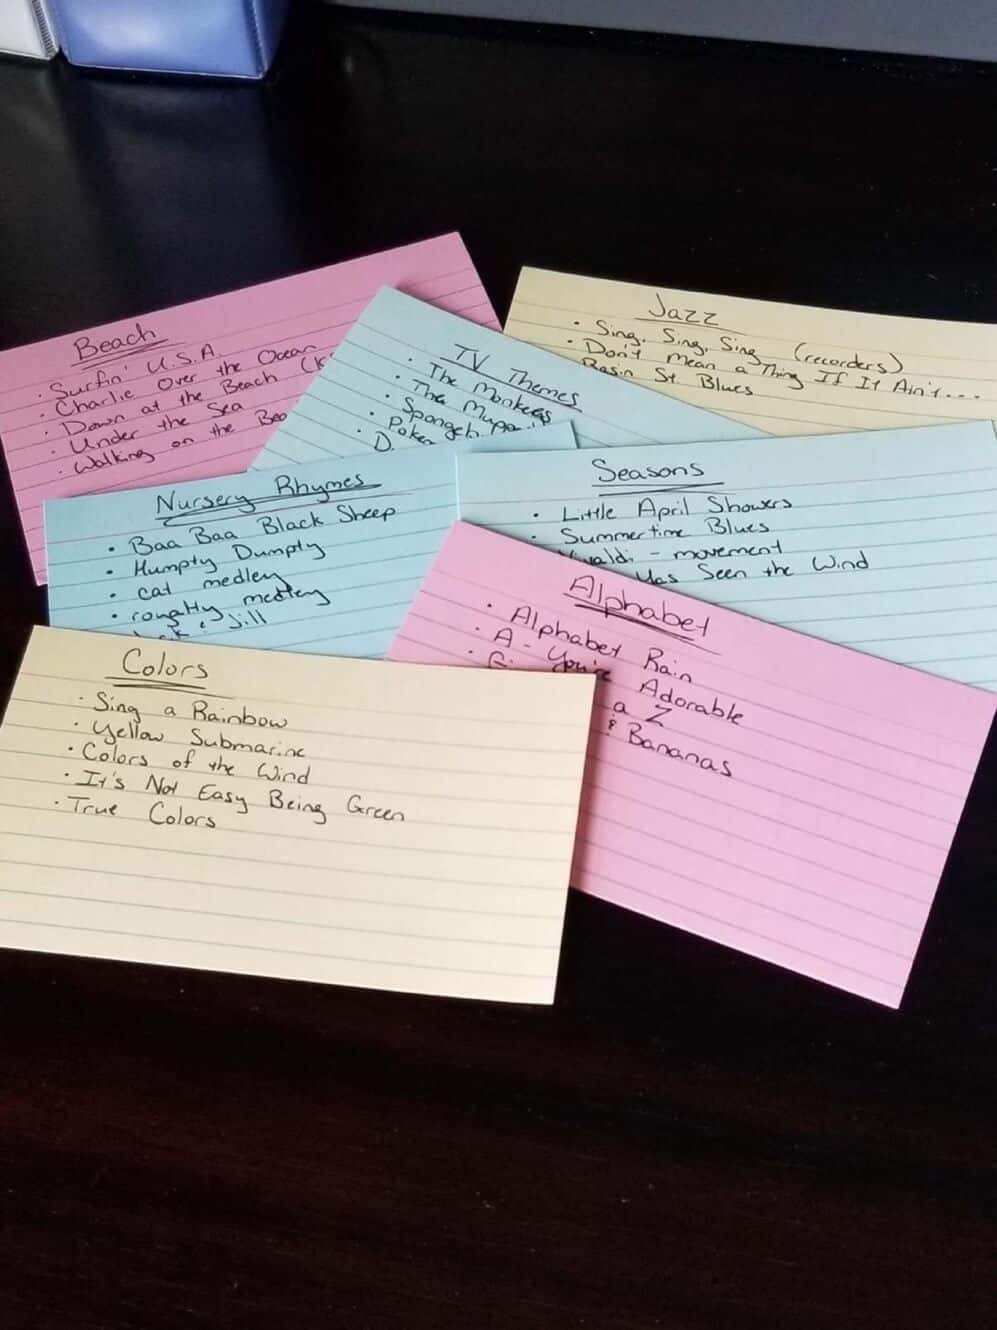 Beach
· Surfin' U.S.A.
· Charlie Over the Ocean
· Down at the Beach
· Under the Sea
· Walking on the
Jazz
· Sing, Sing, Sing (recorders)
· Don't Mean a Thing If It Ain't...
Basin St. Blues
TV Themes
· The Monkees
· The
·
·
Nursery Rhymes
· Baa Baa Black Sheep
· Humpty Dumpty
· cat medley
· royalty medley
Jill
Seasons
· Little April Showers
· Summertime Blues
Vivaldi - movement
Has Seen the Wind
Alphabet
· Alphabet Rain
· A - You're Adorable
a Z
& Bananas
Colors
· Sing a Rainbow
· Yellow Submarine
· Colors of the Wind
· It's Not Easy Being Green
· True Colors